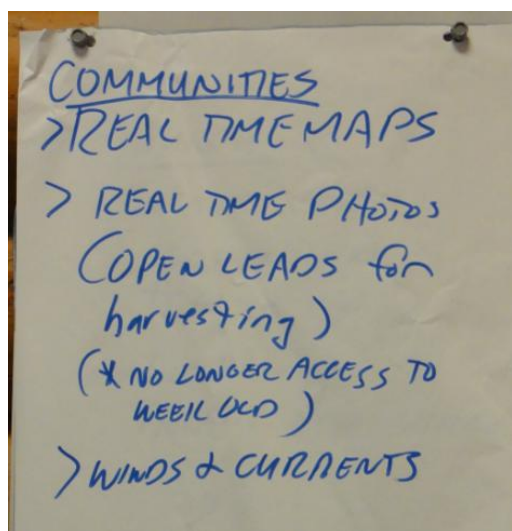 COMMUNITIES
>REAL TIME MAPS
> REAL TIME PHOTOS
(OPEN LEADS for
harvesting)
(* NO LONGER ACCESS TO
WEEK OLD)
>WINDS & CURRENTS